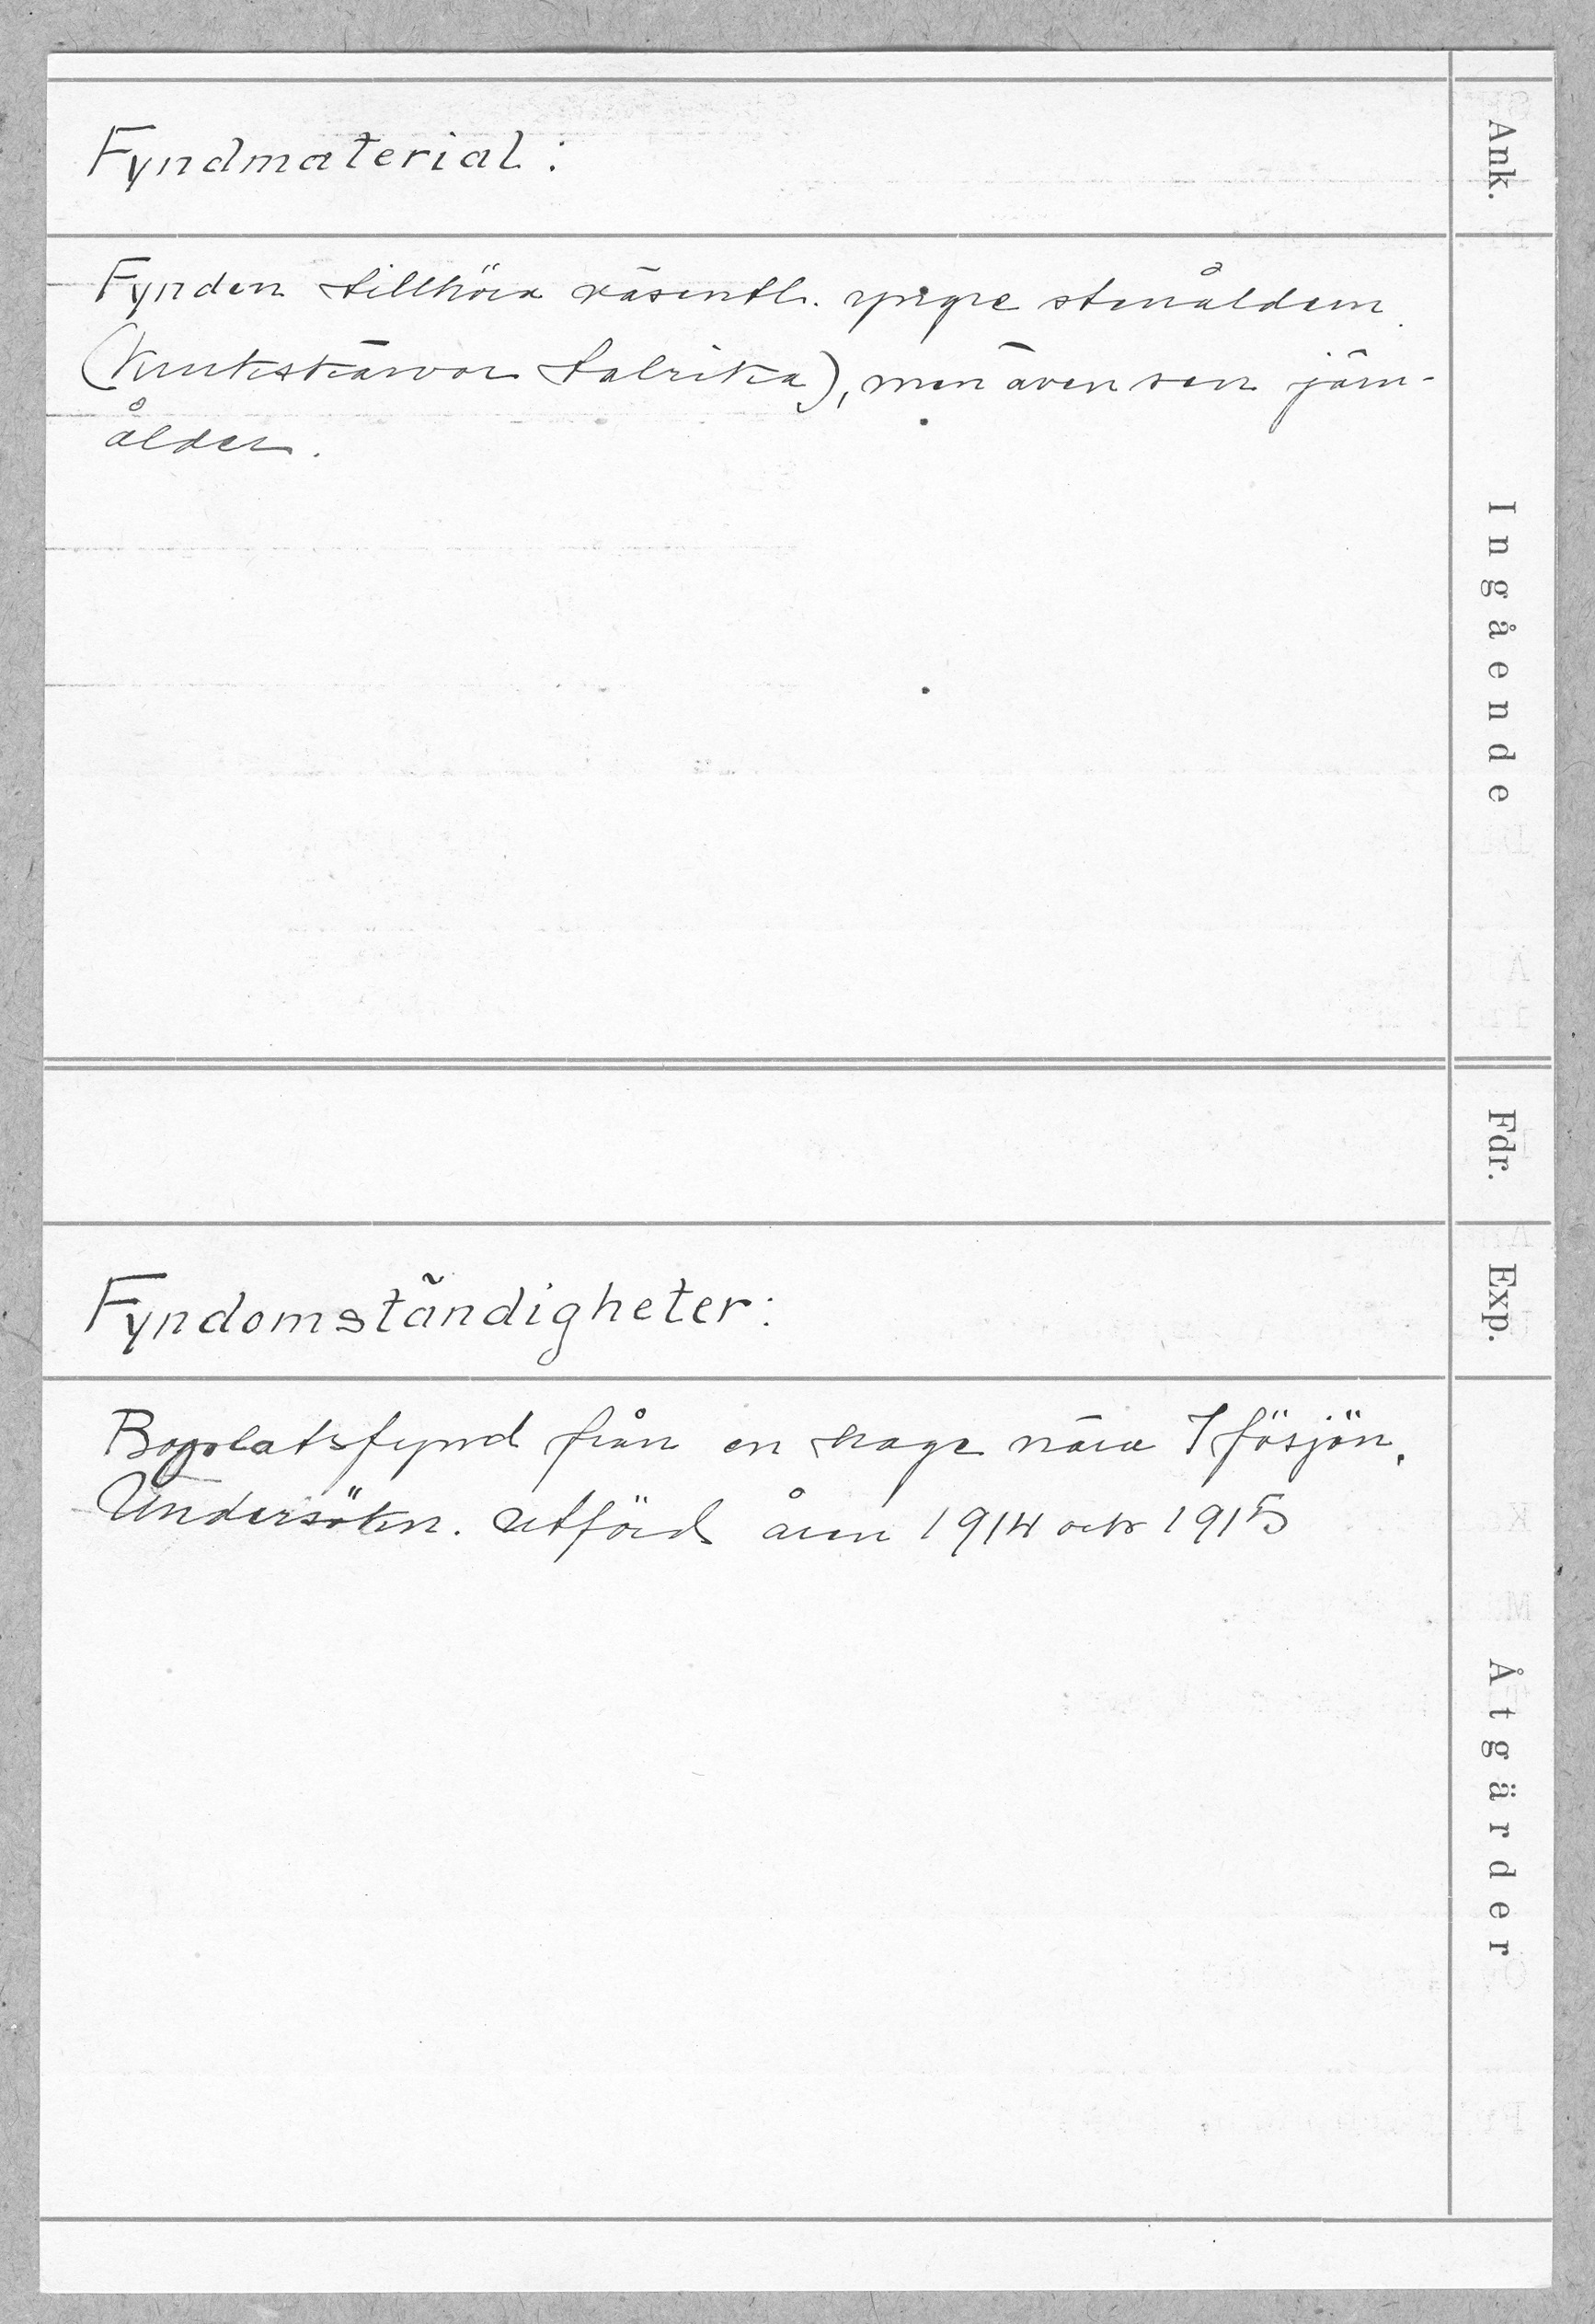 Fyndmaterial:
Ank.
Fynden tillhöra väsentl. yngre stenåldern.
(Krukskärvor talrika), men även sen järn-
ålder.
Ingående
Fdr.
Exp.
Fyndomständigheter:
Boplatsfynd från en hage nära Ifösjön.
Undersökn. utförd åren 1914 och 1915
Åtgärder